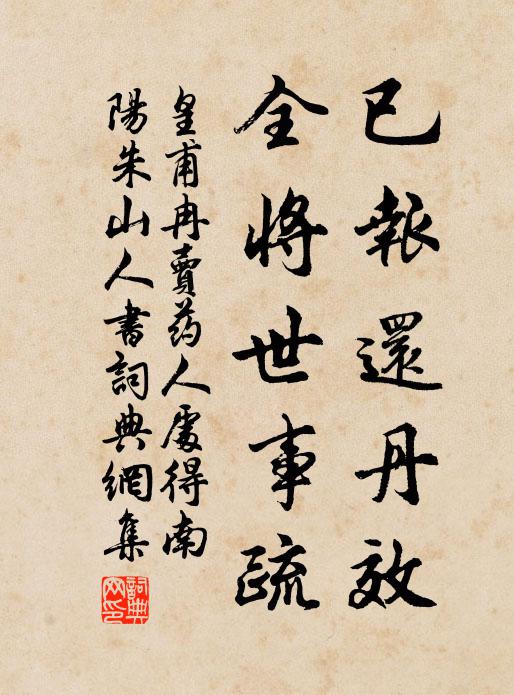 已報還丹效
全將世事疏
皇甫冉賣药人處得南
陽朱山人書詞典網集
詞典網印